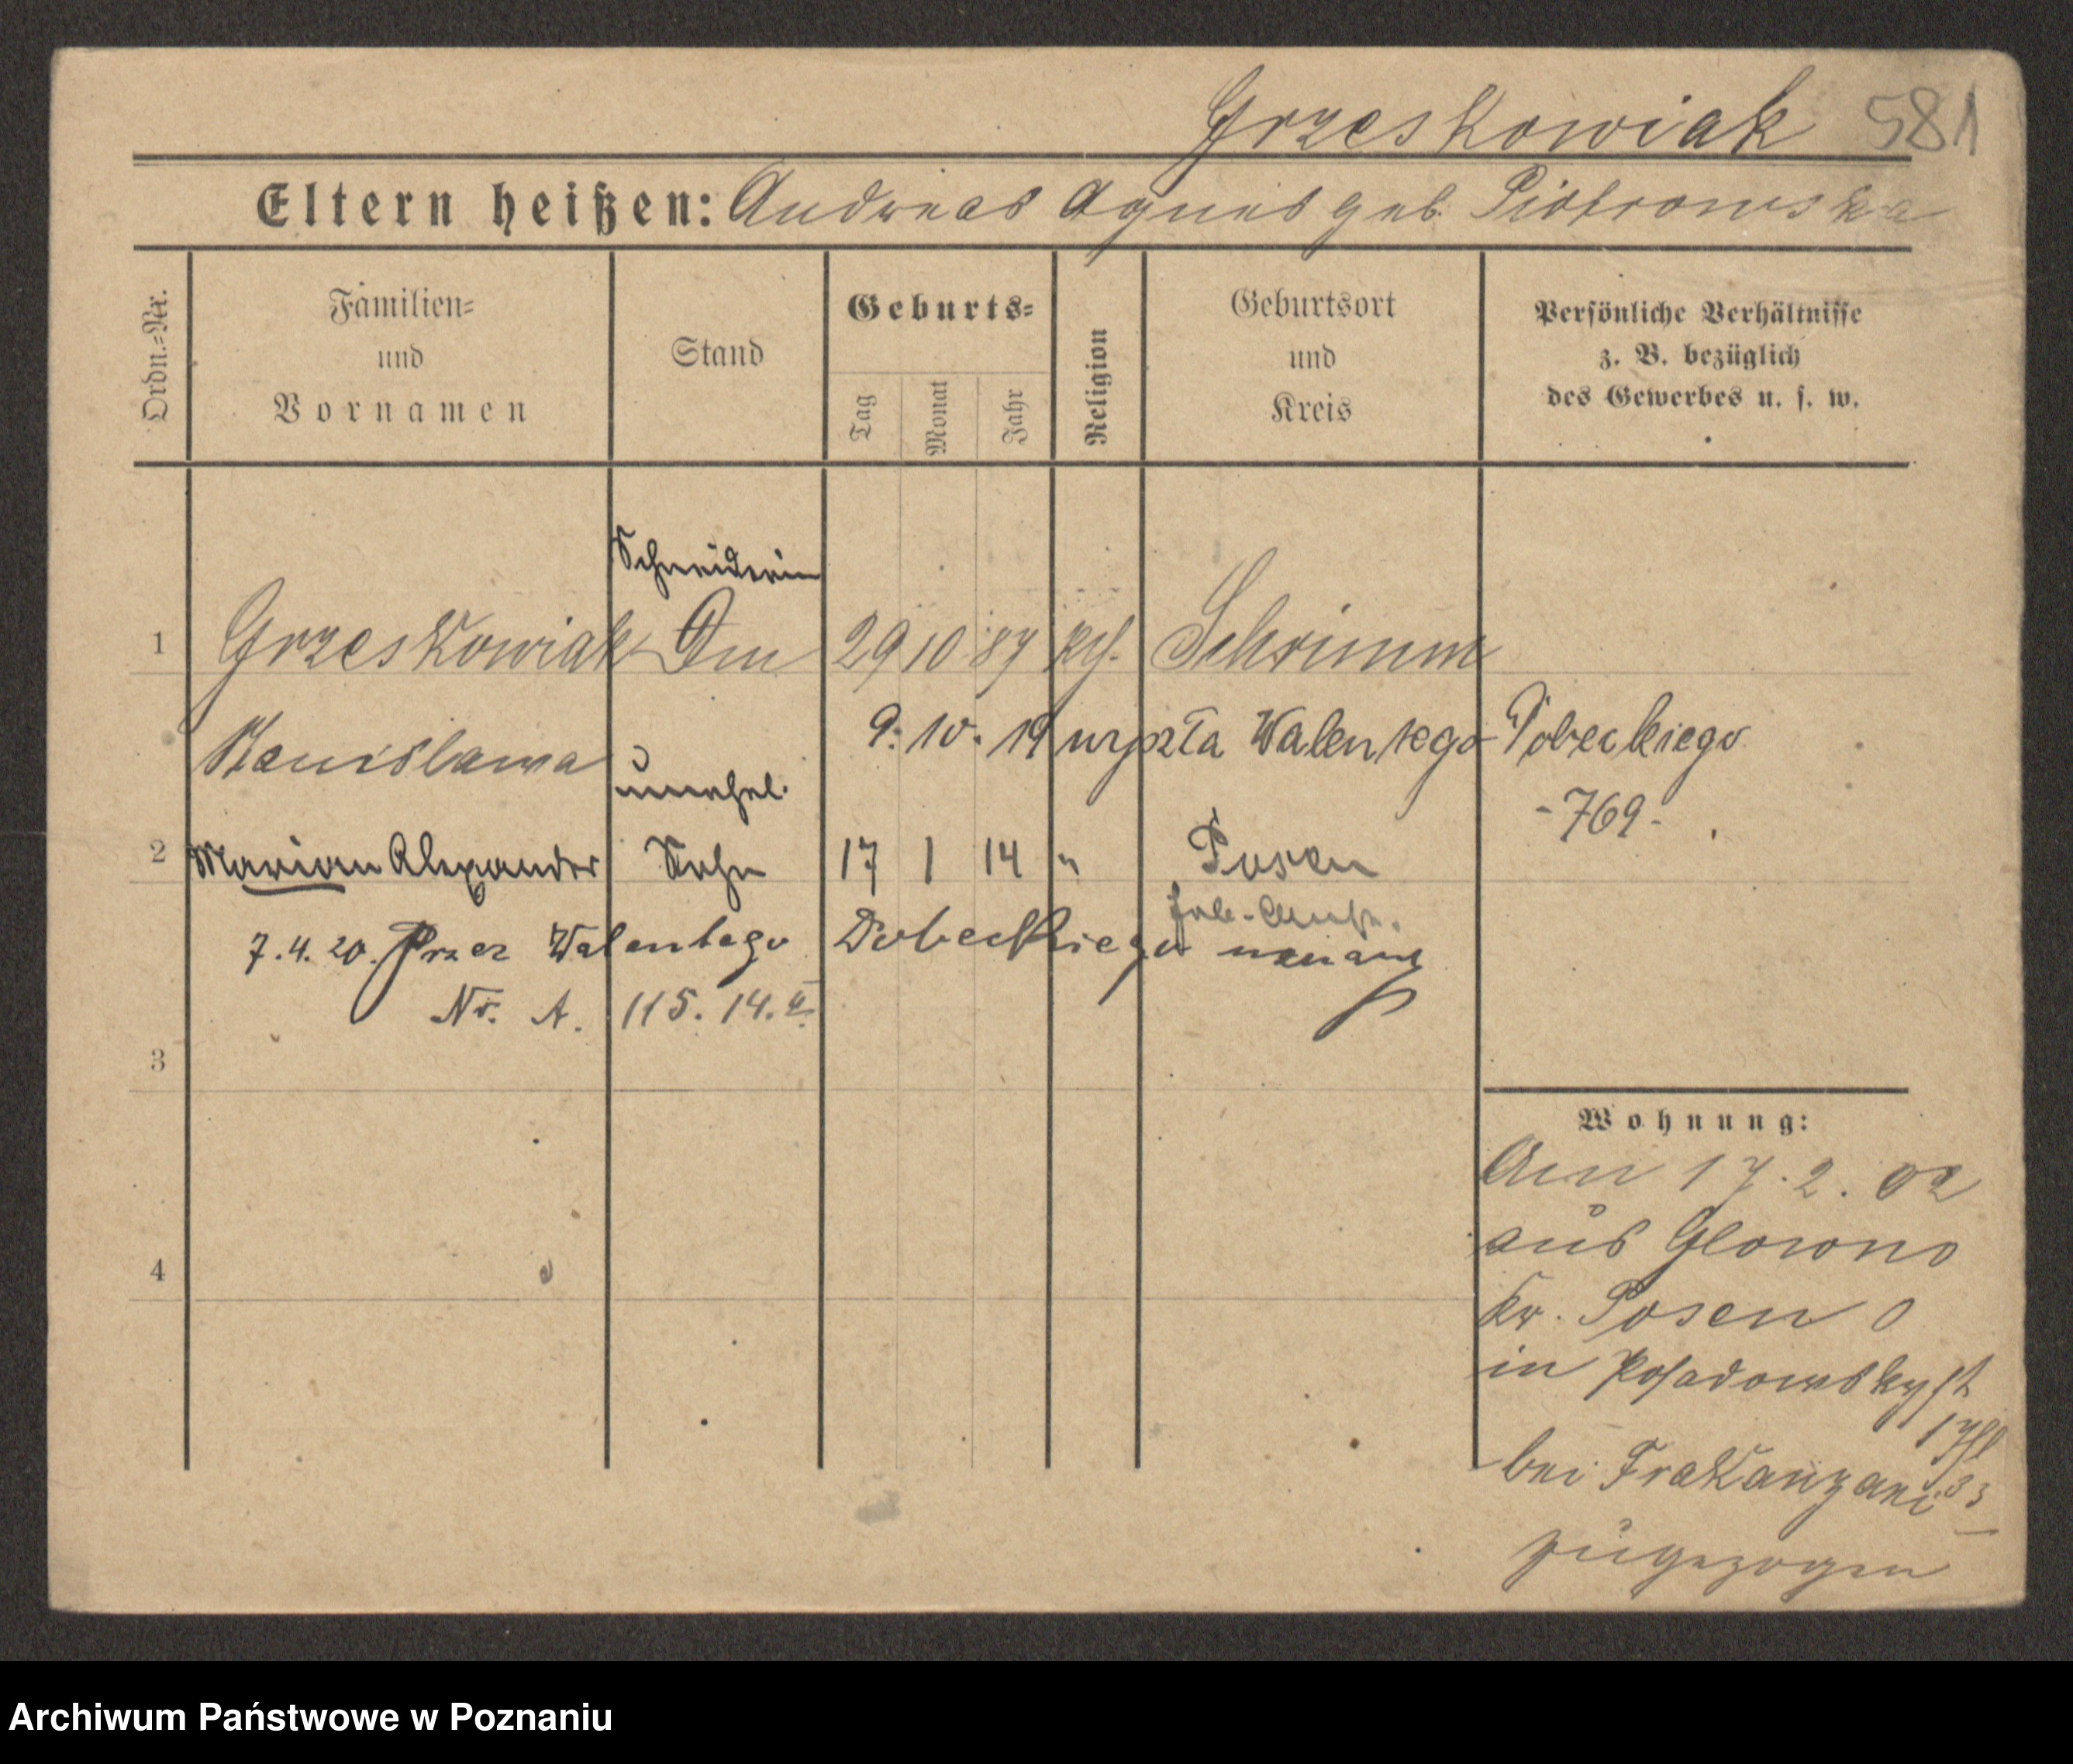 Grzeskowiak 581
Eltern heißen: Andreas Agnes geb. Piotrowska
Ordn.-Nr.
Familien-
und
Vornamen
Stand
Geburts-
Tag
Monat
Jahr
Religion
Geburtsort
und
Kreis
Persönliche Verhältnisse
z. B. bezüglich
des Gewerbes u. s. w.
Schneiderin
1 Grzeskowiak 29 10 87 kth. Schrimm
Stanislawa
9. 10. 19 wyszła Walentego Dobeckiego
- 769 -
unehel.
2 Marian Alexander Sohn 17 1 14 " Posen
7. 4. 20. Przez Walentego Dobeckiego uznany
Nr. A. 115. 14. II
3
4
Wohnung:
Am 17. 2. 02
aus Glowno
Kr. Posen O
in Posadowskyst
bei
zugezogen
Archiwum Państwowe w Poznaniu